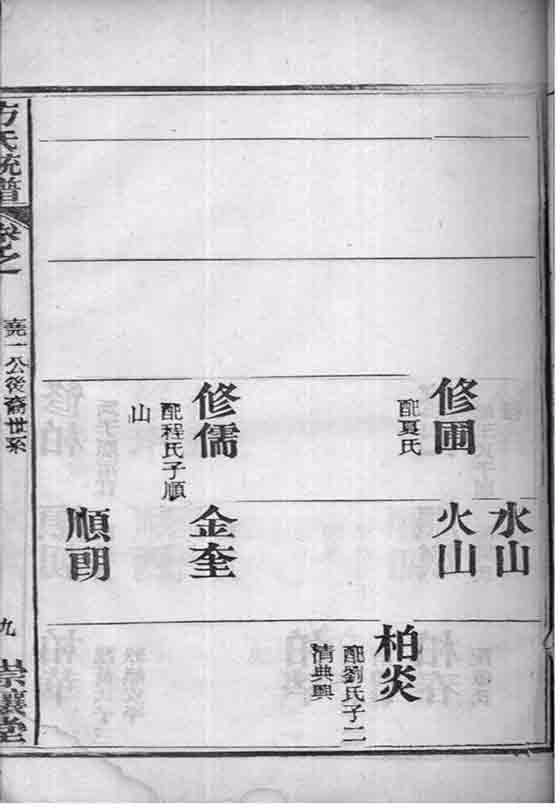 修圃
配夏氏
修儒
配程氏子順
山
水山
火山
金奎
順
柏炎
配劉氏子二
清典興
方氏統譜
卷之
堯一公後裔世系
九
崇讓堂